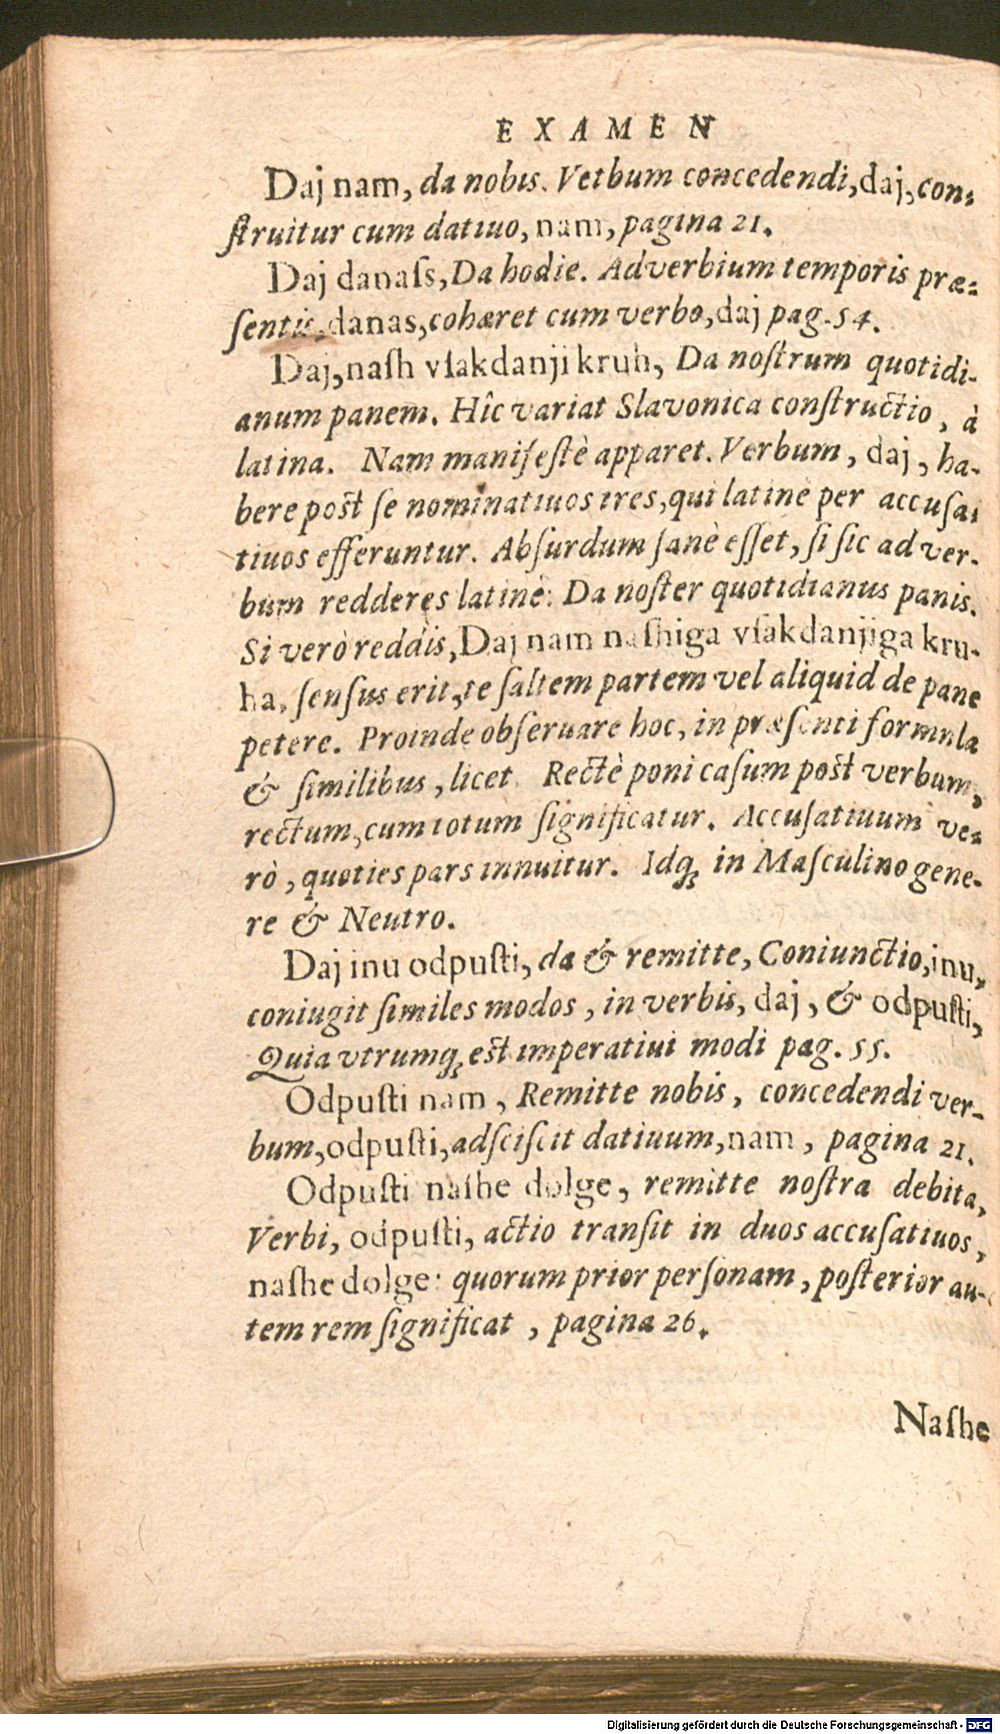 EXAMEN
Daj nam, da nobis. Vetbum concedendi, daj, con-
ſtruitur cum datiuo, nam, pagina 21.
Daj danaſs, Da hodie. Adverbium temporis præ-
ſentis, danas, cohæret cum verbo, daj pag. 54.
Daj, naſh vſakdanji kruh, Da noſtrum quotidi-
anum panem. Hîc variat Slavonica conſtructio, à
latina. Nam manifeſtè apparet. Verbum, daj, ha-
bere poſt ſe nominatiuos tres, qui latinè per accuſa-
tiuos efferuntur. Abſurdum ſanè eſſet, ſi ſic ad ver-
bum redderes latinè: Da noſter quotidianus panis.
Si verò reddis, Daj nam naſhiga vſakdanjiga kru-
ha, ſenſus erit, te ſaltem partem vel aliquid de pane
petere. Proinde obſeruare hoc, in præſenti formula
& ſimilibus, licet. Rectè poni caſum poſt verbum,
rectum, cum totum ſignificatur. Accuſatiuum ve-
rò, quoties pars innuitur. Idq́; in Maſculino gene-
re & Neutro.
Daj inu odpuſti, da & remitte, Coniunctio, inu,
coniugit ſimiles modos, in verbis, daj, & odpuſti,
Quia vtrumq́; eſt imperatiui modi pag. 55.
Odpuſti nam, Remitte nobis, concedendi ver-
bum, odpuſti, adſciſcit datiuum, nam, pagina 21.
Odpuſti naſhe dolge, remitte noſtra debita,
Verbi, odpuſti, actio tranſit in duos accuſatiuos,
naſhe dolge: quorum prior perſonam, poſterior au-
tem rem ſignificat, pagina 26.
Naſhe
Digitalisierung gefördert durch die Deutsche Forschungsgemeinschaft - DFG